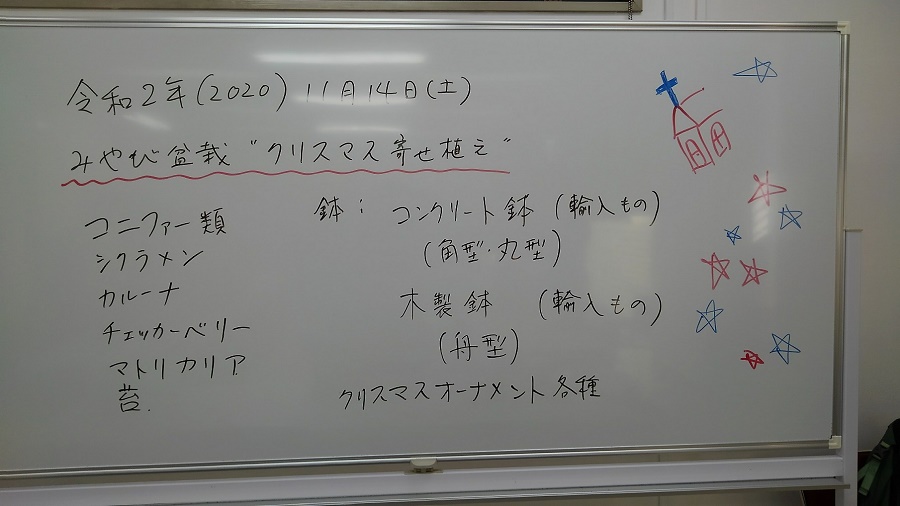 令和2年(2020) 11月14日(土)
みやび盆栽 "クリスマス寄せ植え"
コニファー類
シクラメン
カルーナ
チェッカーベリー
マトリカリア
苔.
鉢: コンクリート鉢 (輸入もの)
(角型・丸型)
木製鉢 (輸入もの)
(舟型)
クリスマスオーナメント各種